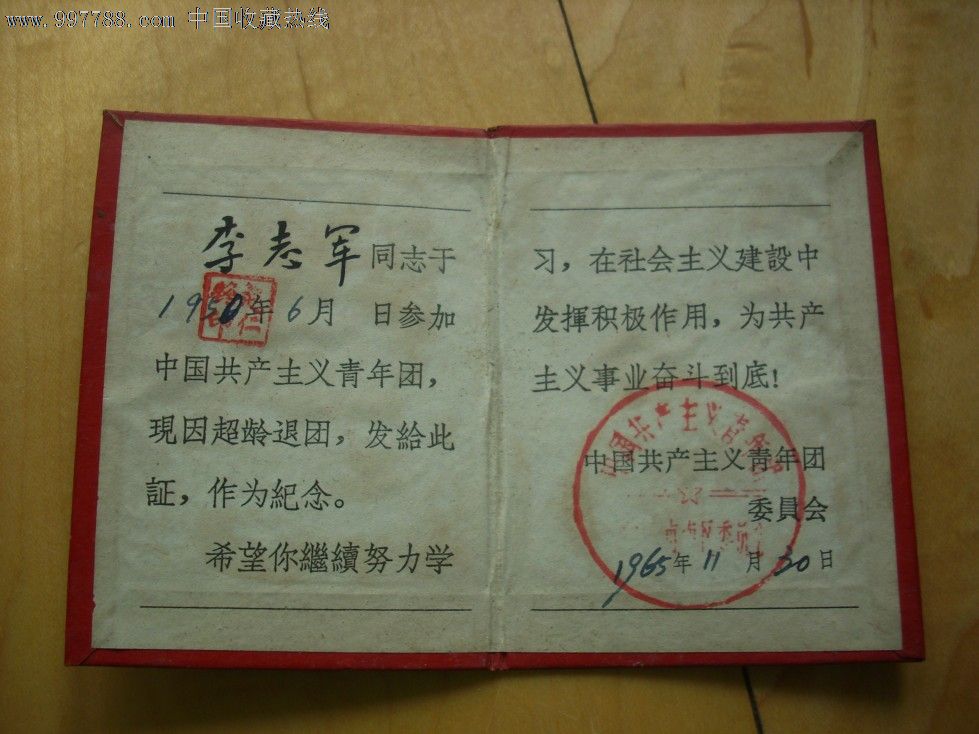 www.997788.com 中国收藏热线
李志军同志于
1950年6月 日参加
中国共产主义青年团，
現因超龄退团，发給此
証，作为紀念。
希望你繼續努力学
习，在社会主义建設中
发揮积极作用，为共产
主义事业奋斗到底！
中国共产主义青年团
中国共产主义青年团
委員会
1965年11月30日